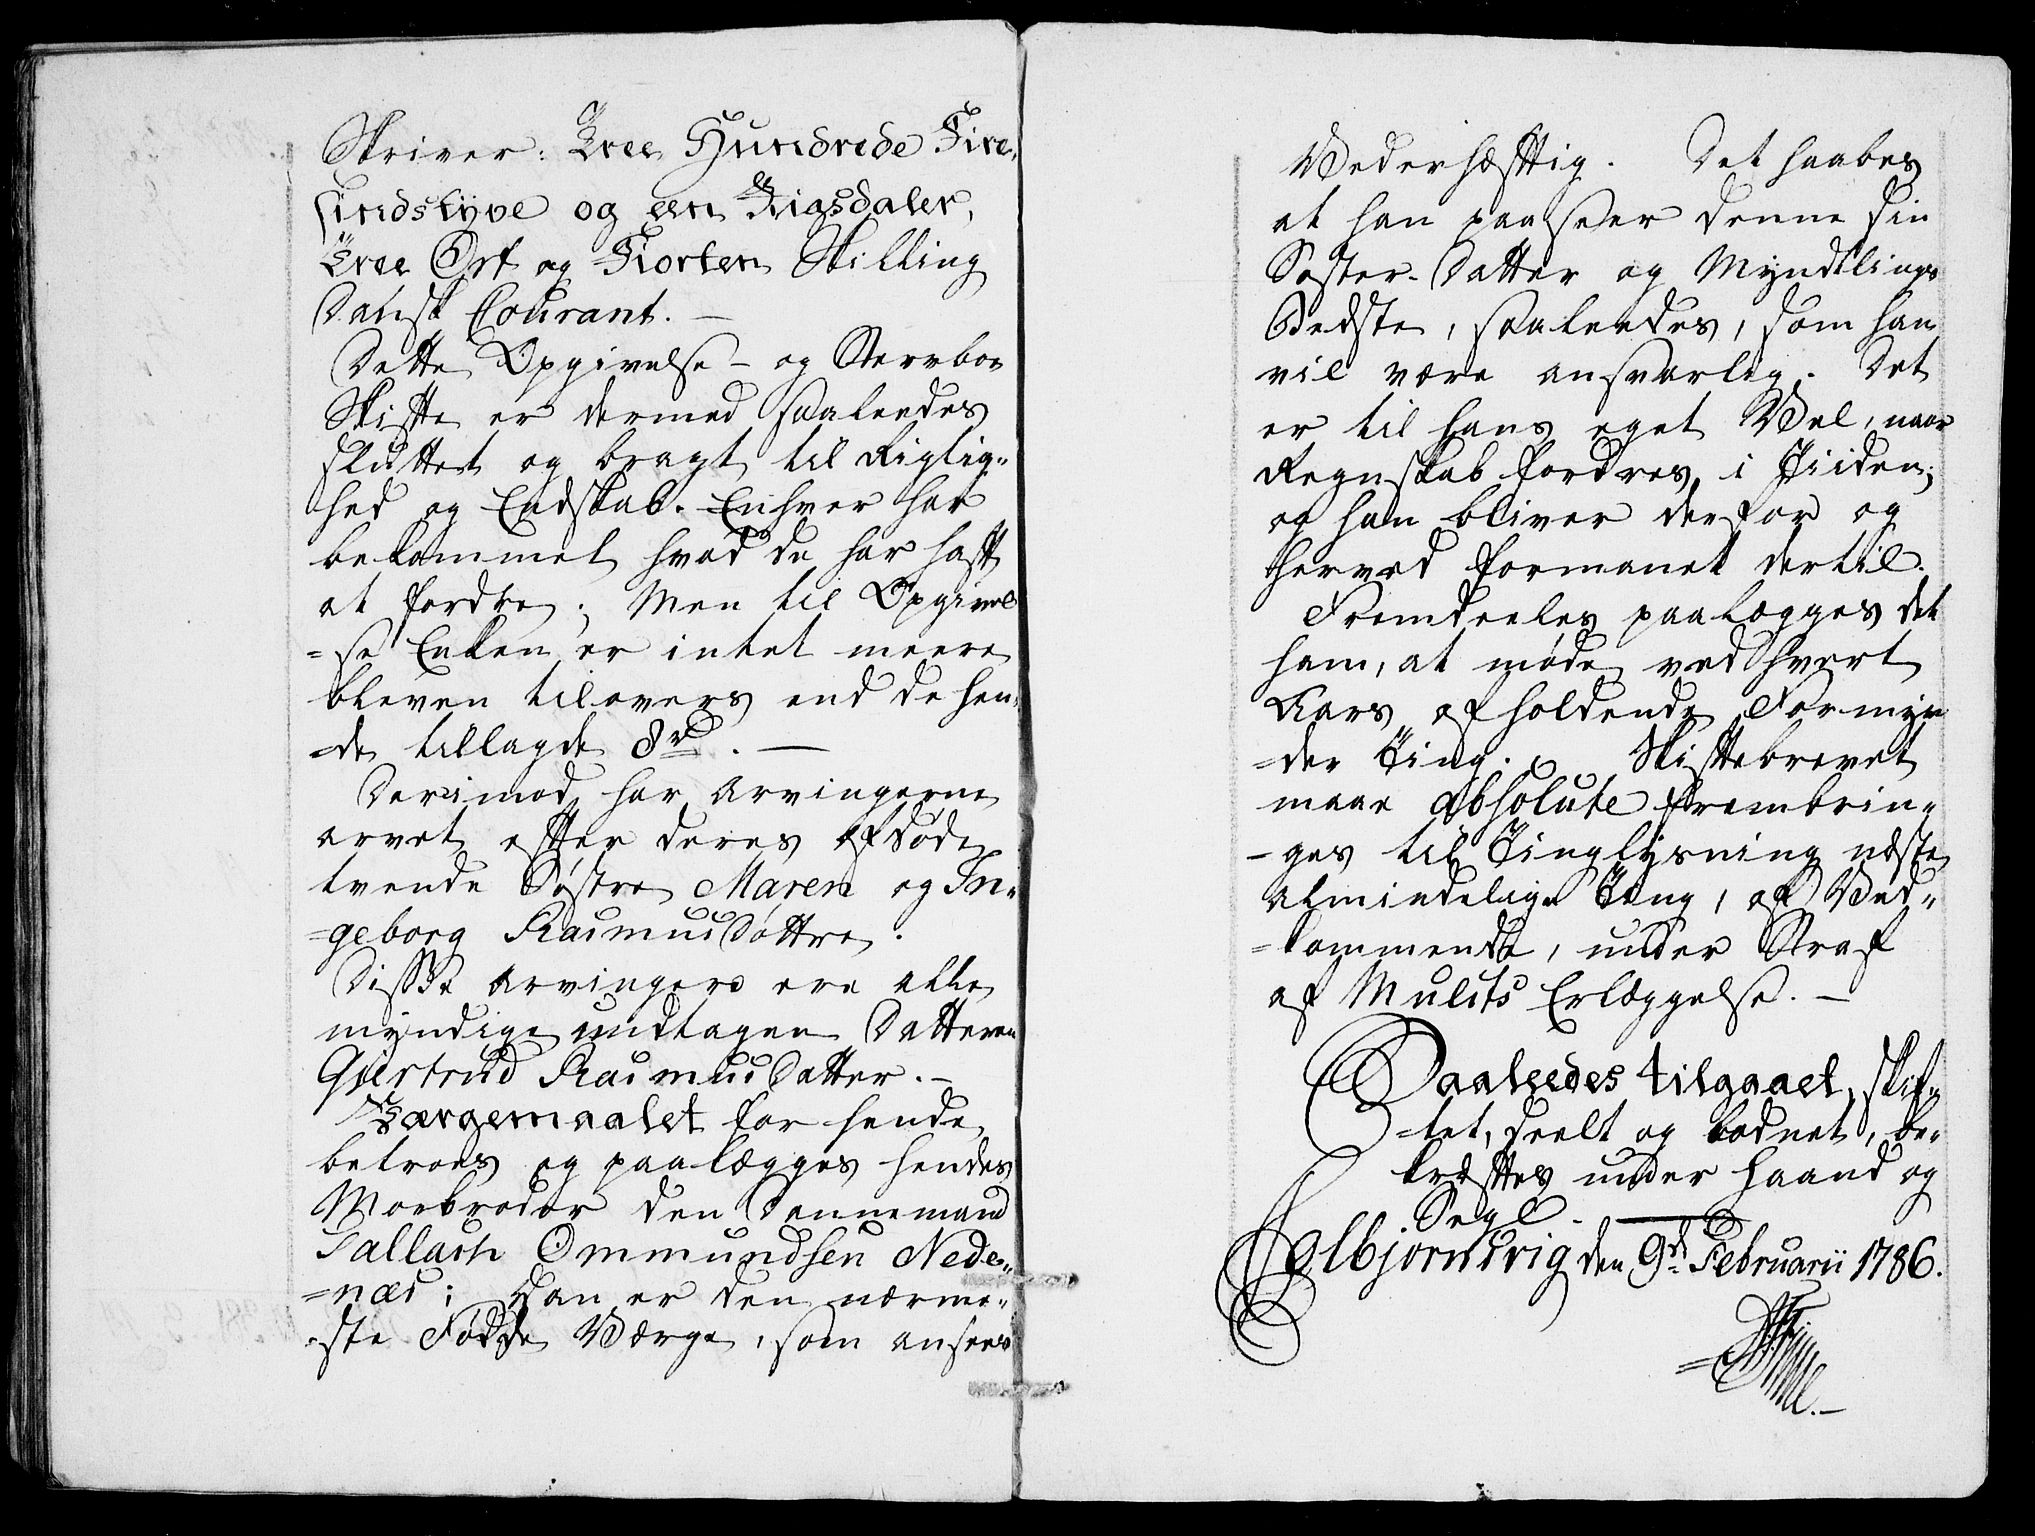 Skriver: Tree Hundrede Fire,
sindstyve og een Rigsdaler,
Tree Ort og Fiorten Skilling
Dansk Courant. —
Dette Opgivelse- og Stervboe
Skifte er dermed saaleedes
sluttet og bragt til Rigtig„
hed og Endskab. Enhver har
bekommet hvad de har hafft
at fordre; Men til Opgivel
=se Enken er intet meere
bleven tilovers end de hen„
=de tillagde 8 rd. —
Derimod har Arvingerne
arvet effter deres afdøde
tvende Søstre Maren og In„
=geborg Rasmusdøttre.
Disse Arvinger ere alle
myndige undtagen Datteren
Giertrud Rasmusdatter. —
Værgemaalet for hende
betroes og paalægges hendes
Morbroder den Dannemand
Tallach Ommundsen Nede„
=næs; Han er den nærme„
=ste Fødde Værge, som ansees
Vederhæfftig. Det haabes
at han paaseer denne sin
Søster-Datter og Myndtlings
Bedste, saaleedes, som han
vil være ansvarlig. Det
er til hans eget Vel, naar
Regnskab fordres, i Tiiden;
og han bliver derfor og
herved formanet dertil.
Fremdeeles paalægges det
ham, at møde ved hvert
Aars afholdende Formyn
=der Ting. Skifftebrevet
maae absolute frembrin„
=ges til Tinglysning næste
almindelige Ting, af Ved„
=kommende, under Straf
af Mulcts Erlæggelse. —
Saaleedes tilgaaet, skif„
=tet, deelt og bodnet, be„
kræfftes under Haand og
Segl. —
Kolbjornsvig den 9de Februarii 1786.